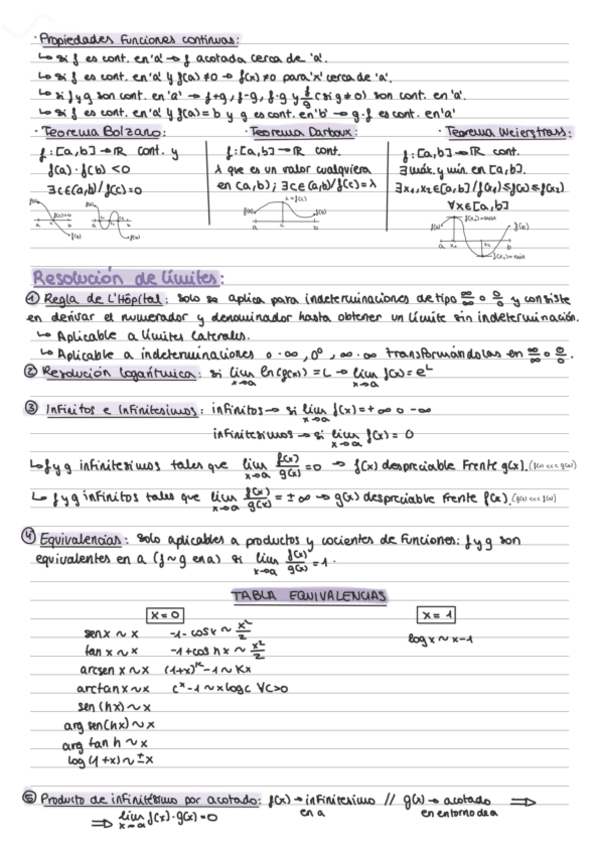 · Propiedades Funciones continuas:
↳ si f es cont. en 'a' → f acotada cerca de 'a'.
↳ si f es cont. en 'a' y f(a) ≠ 0 → f(x) ≠ 0 para 'x' cerca de 'a'.
↳ si f y g son cont. en 'a' → f+g, f-g, f·g y f/g (si g ≠ 0) son cont. en 'a'.
↳ si f es cont. en 'a' y f(a) = b y g es cont. en 'b' → g·f es cont. en 'a'
· Teorema Bolzano:
f: [a,b] → ℝ cont. y
f(a) · f(b) < 0
∃ c ∈ (a,b) / f(c) = 0
· Teorema Darboux:
f: [a,b] → ℝ cont.
λ que es un valor cualquiera
en (a,b); ∃ c ∈ (a,b) / f(c) = λ
· Teorema Weierstrass:
f: [a,b] → ℝ cont.
∃ máx. y mín. en [a,b].
∃ x₁, x₂ ∈ [a,b] / f(x₁) ≤ f(x) ≤ f(x₂)
∀x ∈ [a,b]
Resolución de Límites:
① Regla de L'Hôpital: solo se aplica para indeterminaciones de tipo ∞/∞ o 0/0 y consiste
en derivar el numerador y denominador hasta obtener un límite sin indeterminación.
↳ Aplicable a límites laterales.
↳ Aplicable a indeterminaciones 0·∞, 0⁰, ∞·∞ transformándolas en ∞/∞ o 0/0.
② Resolución logarítmica: si lim x→a ln(g(x)) = L → lim x→a f(x) = e^L
③ Infinitos e Infinitesimos: infinitos → si lim x→a f(x) = +∞ o -∞
infinitesimos → si lim x→a f(x) = 0
↳ f y g infinitesimos tales que lim x→a f(x)/g(x) = 0 → f(x) despreciable frente g(x). (f(x) <<< g(x))
↳ f y g infinitos tales que lim x→a f(x)/g(x) = ±∞ → g(x) despreciable frente f(x). (g(x) <<< f(x))
④ Equivalencias: solo aplicables a productos y cocientes de funciones: f y g son
equivalentes en a (f ~ g en a) si lim x→a f(x)/g(x) = 1.
TABLA EQUIVALENCIAS
x = 0
x = 1
sen x ~ x -1 - cos x ~ x²/2
log x ~ x-1
tan x ~ x -1 + cos h x ~ x²/2
arcsen x ~ x (1+x)^K - 1 ~ Kx
arctan x ~ x c^x - 1 ~ x log c ∀c>0
sen (hx) ~ x
arg sen(hx) ~ x
arg tan h ~ x
log (1 ± x) ~ ± x
⑤ Producto de infinitésimo por acotado: f(x) → infinitesimo en a // g(x) → acotado en entorno de a ⇒
⇒ lim x→a f(x) · g(x) = 0